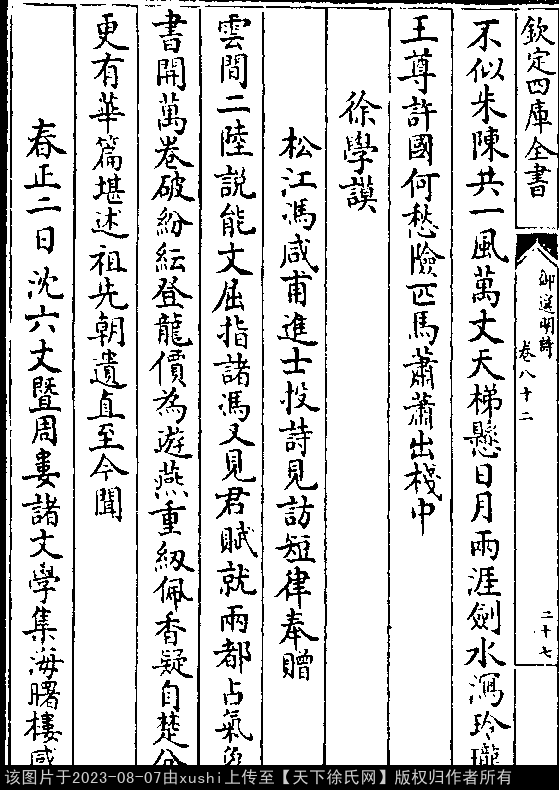 欽定四庫全書
御選明詩
卷八十二
二十七
不似朱陳共一風萬丈天梯懸日月兩涯劍水瀉玲瓏
王尊許國何愁險匹馬蕭蕭出棧中
徐學謨
松江馮咸甫進士投詩見訪短律奉贈
雲間二陸説能文屈指諸馮又見君賦就兩都占氣
書開萬卷破紛紜登龍價為遊燕重紉佩香疑自楚分
更有華篇堪述祖先朝遺直至今聞
春正二日沈六丈暨周婁諸文學集海曙樓
该图片于2023-08-07由xushi上传至【天下徐氏网】版权归作者所有